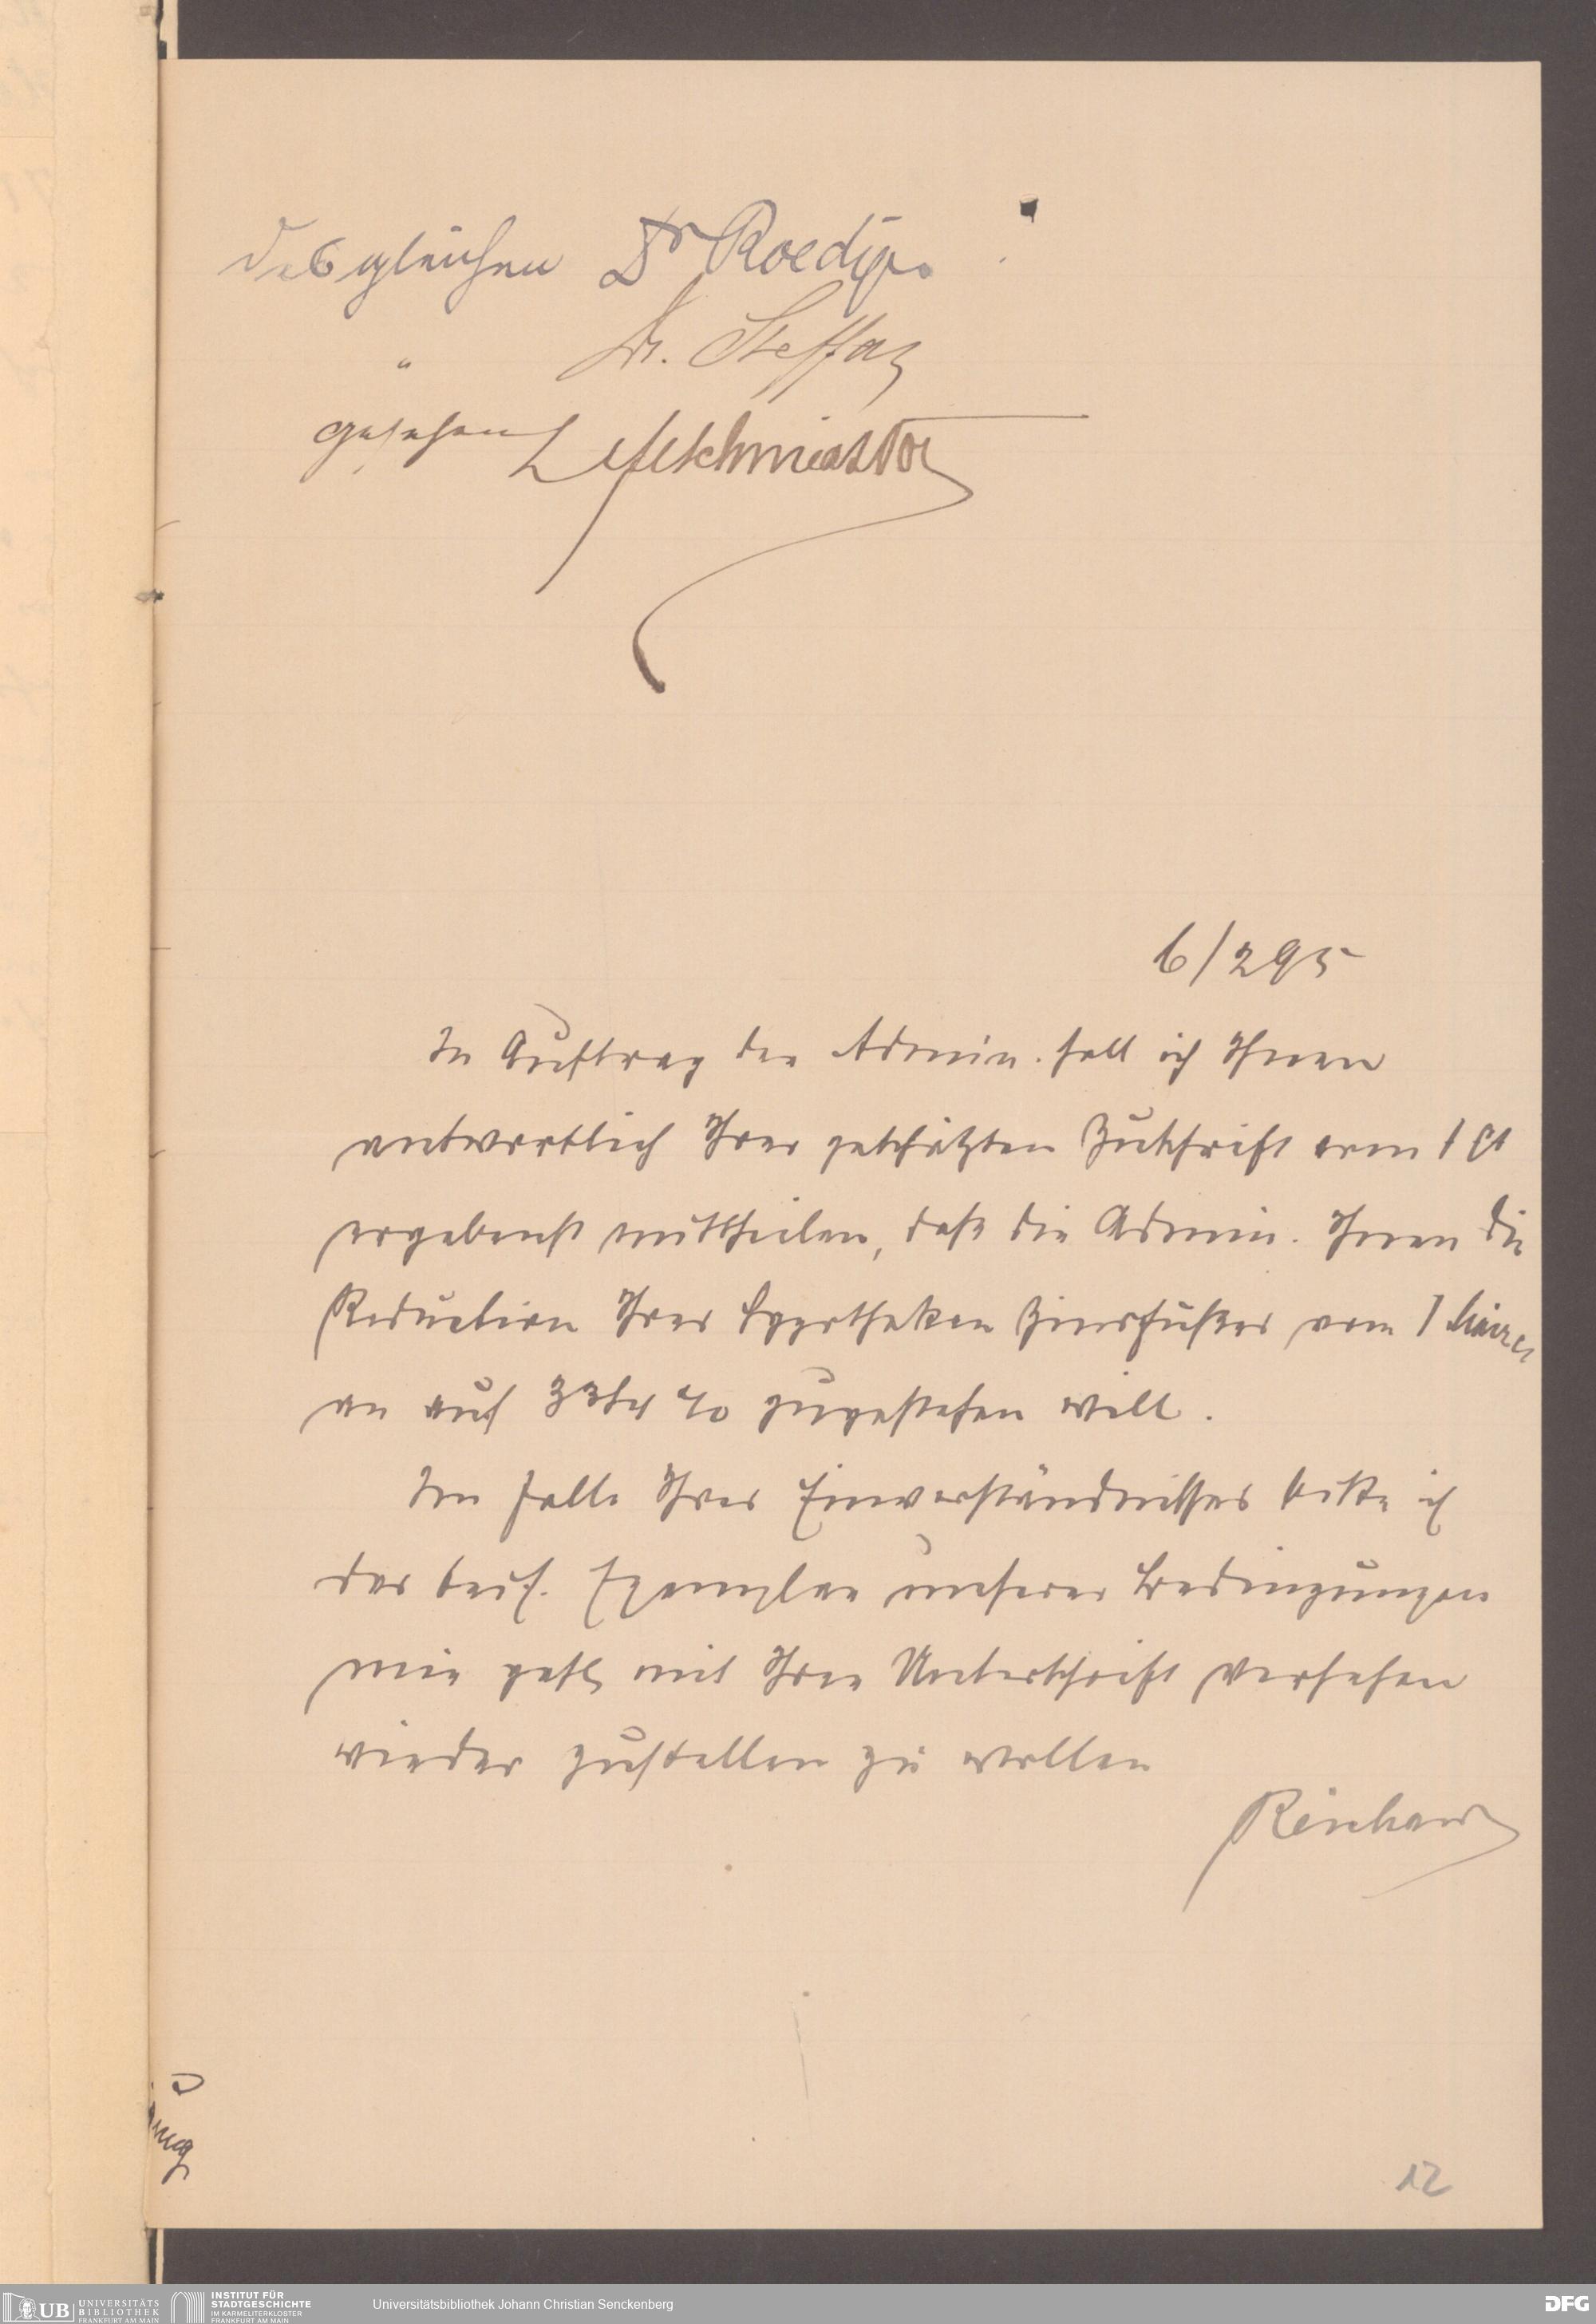 desgleichen Dr Roediger
" Dr. Steffan
gesehen
6/2 95
Im Auftrag der Admin. soll ich Ihnen
antwortlich Ihrer geschätzten Zuschrift vom 1 ct
ergebenst mittheilen, daß die Admin. Ihnen die
Reduction Ihres Hypotheken Zinsfußes vom 1 März cr
an auf 3 3/4 % zugestehen will.
Im Falle Ihres Einverständnisses bitte ich
das beif. Exemplar unserer Bedingungen
mir gefl mit Ihrer Unterschrift versehen
wieder zustellen zu wollen
Reichard
12
UB UNIVERSITÄTS
BIBLIOTHEK
FRANKFURT AM MAIN
INSTITUT FÜR
STADTGESCHICHTE
IM KARMELITERKLOSTER
FRANKFURT AM MAIN
Universitätsbibliothek Johann Christian Senckenberg
DFG